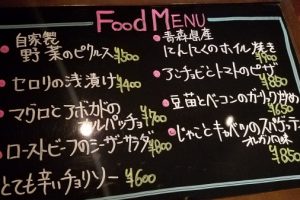 FOOD MENU
自家製
野菜のピクルス ¥500
セロリの浅漬け ¥400
マグロとアボカドの
カルパッチョ ¥700
ローストビーフのシーザーサラダ ¥800
とても辛いチョリソー ¥600
青森県産
にんにくのホイル焼き
アンチョビとトマトのピザ ¥850
豆苗とベーコンのガーリック炒め ¥650
じゃことキャベツのスパゲッティ
¥850